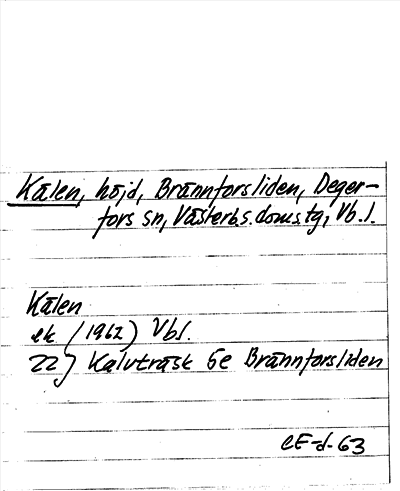 Kälen, höjd, Brännforsliden, Deger-
fors sn, Västerb.s. doms.tg, Vb.l.
Kälen
ek (1962) Vbl.
22 Kalvträsk 6e Brännforsliden
CE-d-63